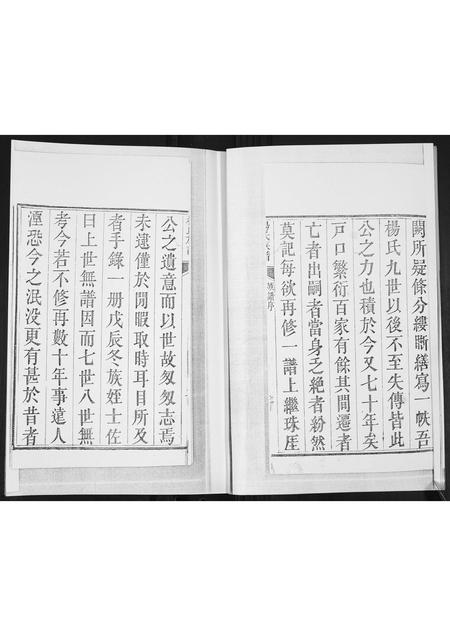 闕所疑條分縷晰繕寫一帙吾
楊氏九世以後不至失傳皆此
公之力也積於今又七十年矣
戶口繁衍百家有餘其間遷者
亡者出嗣者當身乏絶者紛然
莫記每欲再修一譜上繼珠厓
族譜序
公之遺意而以世故匆匆志焉
未逮僅於閒暇取時耳目所及
者手錄一册戊辰冬族姪士佐
曰上世無譜因而七世八世無
考今若不修再數十年事遠人
湮恐今之泯没更有甚於昔者